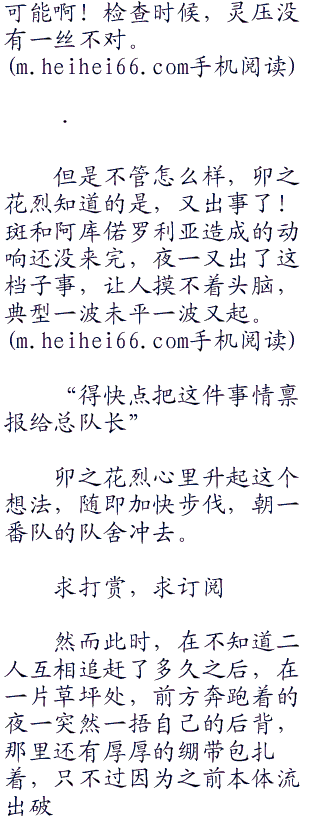 可能啊！检查时候，灵压没
有一丝不对。
(m.heihei66.com手机阅读)
.
但是不管怎么样，卯之
花烈知道的是，又出事了！
斑和阿库偌罗利亚造成的动
响还没来完，夜一又出了这
档子事，让人摸不着头脑，
典型一波未平一波又起。
(m.heihei66.com手机阅读)
“得快点把这件事情禀
报给总队长”
卯之花烈心里升起这个
想法，随即加快步伐，朝一
番队的队舍冲去。
求打赏，求订阅
然而此时，在不知道二
人互相追赶了多久之后，在
一片草坪处，前方奔跑着的
夜一突然一捂自己的后背，
那里还有厚厚的绷带包扎
着，只不过因为之前本体流
出破